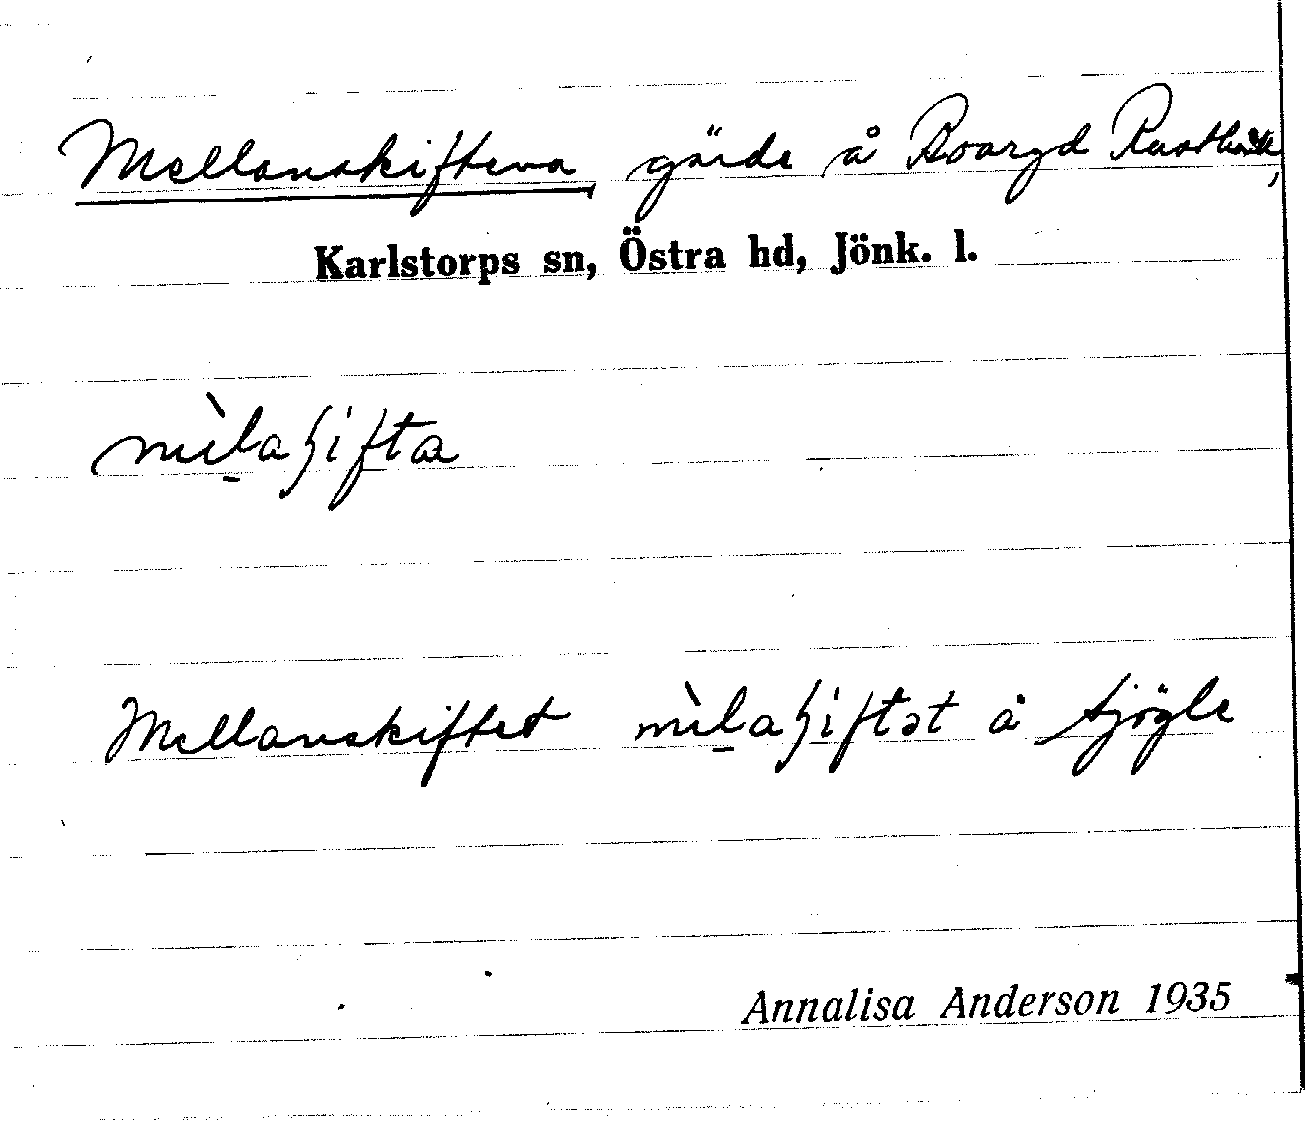 Mellanskiftena, gärde å Boaryd Rusthåll,
Karlstorps sn, Östra hd, Jönk. l.
Mellanskiftet å Sjögle
Annalisa Anderson 1935